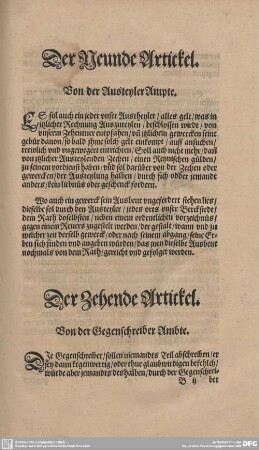 Der Neunde Artickel.
Von der Austeyler Ampte.
ES sol auch ein jeder vnser Austheyler / alles gelt / was in
itzlicher Rechnung Auszuteylen / beschlossen wirdt / von
vnserm Zehentner entpfahen / vñ itzlichem gewercken seine
gebür dauon / so bald ihme solch gelt einkompt / auff ansuchen /
trewlich vnd vngewegert entrichten / Soll auch nicht mehr / dañ
von itzlicher Austeylenden Zechen / einen Reynischen gülden /
zu seinem vordienst haben / vñd sol darüber von der Zechen oder
gewercken / der Austeylung halben / durch sich odder jemandt
anders / kein liebnüs oder geschenck fordern.
Wo auch ein gewerck sein Ausbeut vngefordert stehen lies /
dieselbe sol durch den Austeyler / jdes orts vnser Berckstedt /
dem Rath doselbsten / neben einem ordentlichen vorzeichnüs /
gegen einem Reuers zugestelt werden / der gestalt / wann vnd zu
welcher zeit derselb gewerck / oder nach seinem abgang / seine Er=
ben sich finden vnd angeben würden / das jnen dieselbe Ausbeut
nochmals von dem Rath / gereicht vnd gefolget werden.
Der Zehende Artickel.
Von der Gegenschreiber Ambte.
DIe Gegenschreiber / sollen niemandts Teil abschreiben / er
sey dann kegenwertig / oder thue glaubwirdigen befehlch /
würde aber jemandts deshalben / durch der Gegenschrei=
B ij der